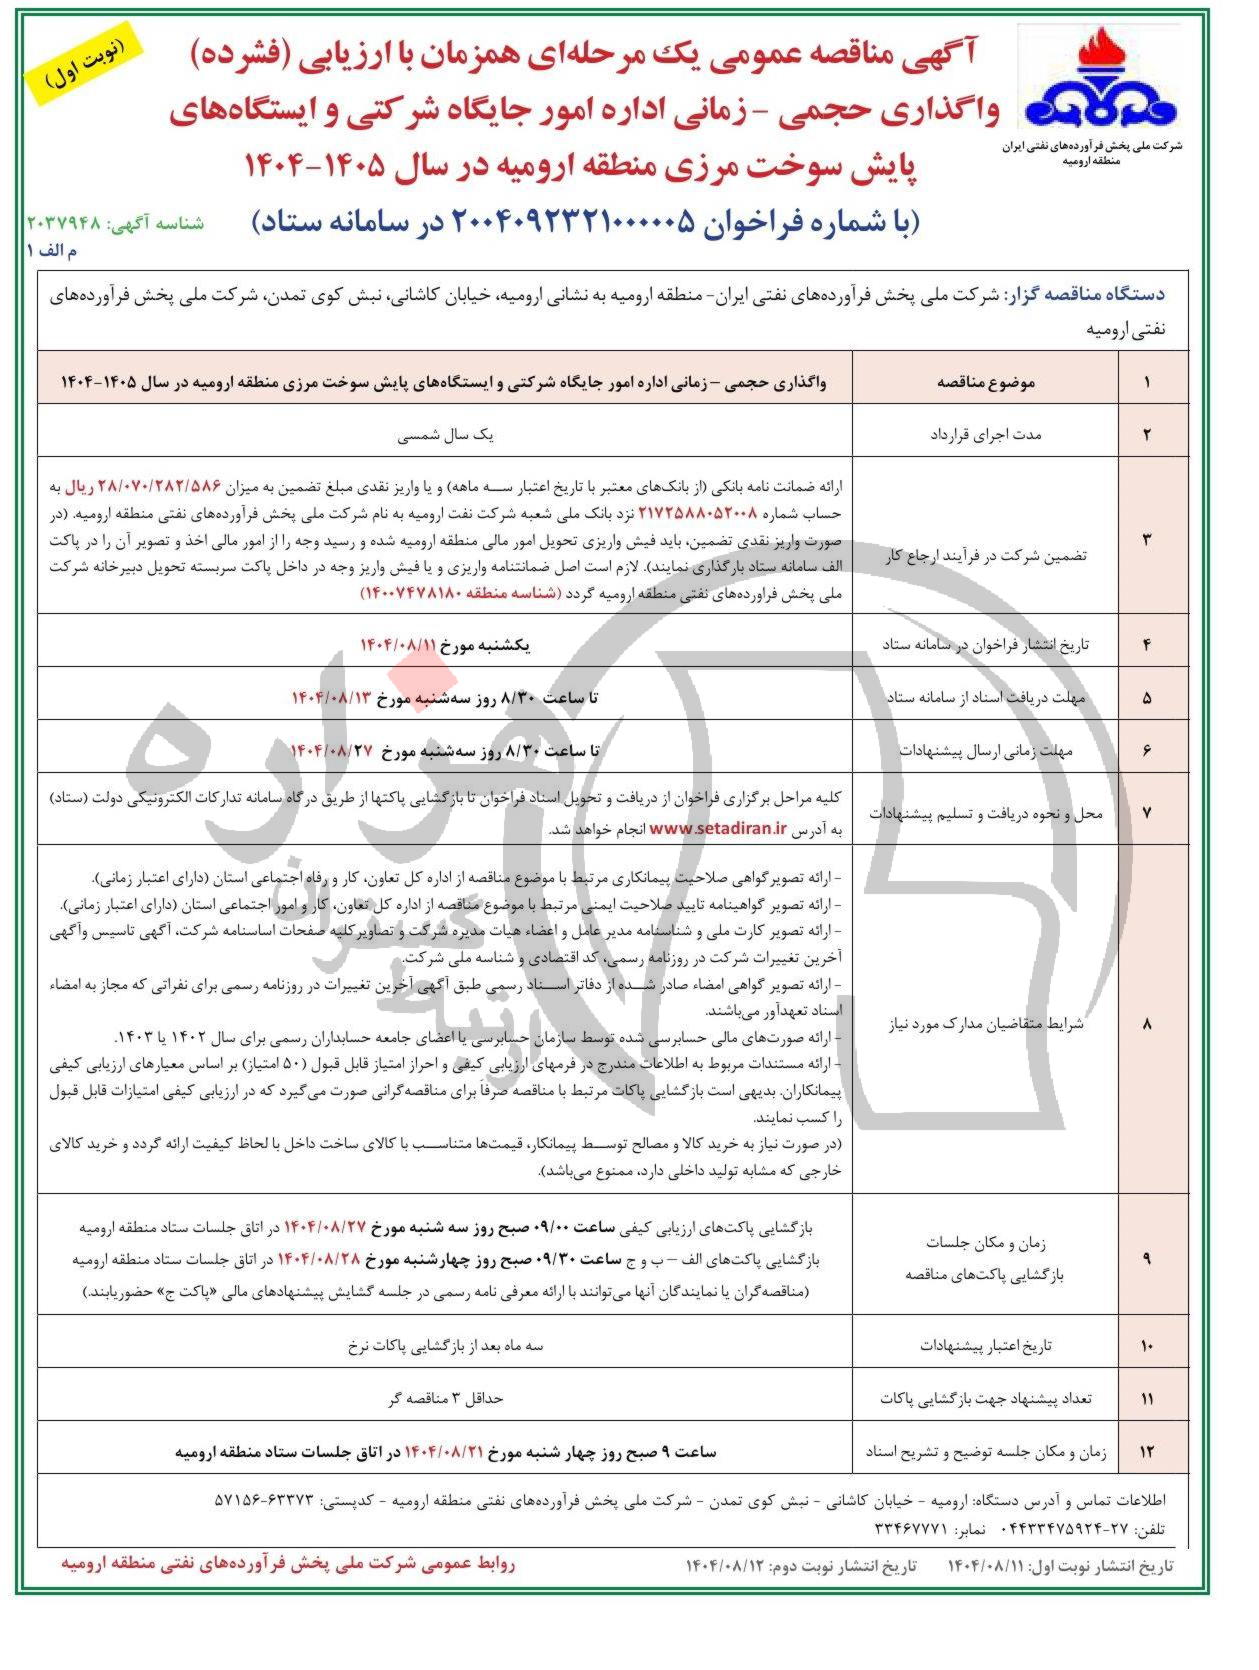 (نوبت اول)
آگهی مناقصه عمومی یک مرحله‌ای همزمان با ارزیابی (فشرده)
واگذاری حجمی – زمانی اداره امور جایگاه شرکتی و ایستگاه‌های
پایش سوخت مرزی منطقه ارومیه در سال ۱۴۰۵-۱۴۰۴
(با شماره فراخوان ۲۰۰۴۰۹۲۳۲۱۰۰۰۰۰۵ در سامانه ستاد)
شرکت ملی پخش فرآورده‌های نفتی ایران
منطقه ارومیه
شناسه آگهی: ۲۰۳۷۹۴۸
م الف ۱
دستگاه مناقصه گزار: شرکت ملی پخش فرآورده‌های نفتی ایران- منطقه ارومیه به نشانی ارومیه، خیابان کاشانی، نبش کوی تمدن، شرکت ملی پخش فرآورده‌های
نفتی ارومیه
۱ موضوع مناقصه واگذاری حجمی – زمانی اداره امور جایگاه شرکتی و ایستگاه‌های پایش سوخت مرزی منطقه ارومیه در سال ۱۴۰۵-۱۴۰۴
۲ مدت اجرای قرارداد یک سال شمسی
۳ تضمین شرکت در فرآیند ارجاع کار
ارائه ضمانت نامه بانکی (از بانک‌های معتبر با تاریخ اعتبار سه ماهه) و یا واریز نقدی مبلغ تضمین به میزان ۲۸/۰۷۰/۲۸۲/۵۸۶ ریال به
حساب شماره ۲۱۷۲۵۸۸۰۵۲۰۰۸ نزد بانک ملی شعبه شرکت نفت ارومیه به نام شرکت ملی پخش فرآورده‌های نفتی منطقه ارومیه. (در
صورت واریز نقدی تضمین، باید فیش واریزی تحویل امور مالی منطقه ارومیه شده و رسید وجه را از امور مالی اخذ و تصویر آن را در پاکت
الف سامانه ستاد بارگذاری نمایند). لازم است اصل ضمانتنامه واریزی و یا فیش واریز وجه در داخل پاکت سربسته تحویل دبیرخانه شرکت
ملی پخش فراورده‌های نفتی منطقه ارومیه گردد (شناسه منطقه ۱۴۰۰۷۴۷۸۱۸۰)
۴ تاریخ انتشار فراخوان در سامانه ستاد یکشنبه مورخ ۱۴۰۴/۰۸/۱۱
۵ مهلت دریافت اسناد از سامانه ستاد تا ساعت ۸/۳۰ روز سه‌شنبه مورخ ۱۴۰۴/۰۸/۱۳
۶ مهلت زمانی ارسال پیشنهادات تا ساعت ۸/۳۰ روز سه‌شنبه مورخ ۱۴۰۴/۰۸/۲۷
۷ محل و نحوه دریافت و تسلیم پیشنهادات
کلیه مراحل برگزاری فراخوان از دریافت و تحویل اسناد فراخوان تا بازگشایی پاکتها از طریق درگاه سامانه تدارکات الکترونیکی دولت (ستاد)
به آدرس www.setadiran.ir انجام خواهد شد.
۸ شرایط متقاضیان مدارک مورد نیاز
- ارائه تصویر گواهی صلاحیت پیمانکاری مرتبط با موضوع مناقصه از اداره کل تعاون، کار و رفاه اجتماعی استان (دارای اعتبار زمانی).
- ارائه تصویر گواهینامه تایید صلاحیت ایمنی مرتبط با موضوع مناقصه از اداره کل تعاون، کار و امور اجتماعی استان (دارای اعتبار زمانی).
- ارائه تصویر کارت ملی و شناسنامه مدیر عامل و اعضاء هیات مدیره شرکت و تصاویر کلیه صفحات اساسنامه شرکت، آگهی تاسیس وآگهی
آخرین تغییرات شرکت در روزنامه رسمی، کد اقتصادی و شناسه ملی شرکت.
- ارائه تصویر گواهی امضاء صادر شده از دفاتر اسناد رسمی طبق آگهی آخرین تغییرات در روزنامه رسمی برای نفراتی که مجاز به امضاء
اسناد تعهدآور می‌باشند.
- ارائه صورت‌های مالی حسابرسی شده توسط سازمان حسابرسی یا اعضای جامعه حسابداران رسمی برای سال ۱۴۰۲ یا ۱۴۰۳.
- ارائه مستندات مربوط به اطلاعات مندرج در فرمهای ارزیابی کیفی و احراز امتیاز قابل قبول (۵۰ امتیاز) بر اساس معیارهای ارزیابی کیفی
پیمانکاران. بدیهی است بازگشایی پاکات مرتبط با مناقصه صرفاً برای مناقصه‌گرانی صورت می‌گیرد که در ارزیابی کیفی امتیازات قابل قبول
را کسب نمایند.
(در صورت نیاز به خرید کالا و مصالح توسط پیمانکار، قیمت‌ها متناسب با کالای ساخت داخل با لحاظ کیفیت ارائه گردد و خرید کالای
خارجی که مشابه تولید داخلی دارد، ممنوع می‌باشد).
۹ زمان و مکان جلسات
بازگشایی پاکت‌های مناقصه
بازگشایی پاکت‌های ارزیابی کیفی ساعت ۰۹/۰۰ صبح روز سه شنبه مورخ ۱۴۰۴/۰۸/۲۷ در اتاق جلسات ستاد منطقه ارومیه
بازگشایی پاکت‌های الف – ب و ج ساعت ۰۹/۳۰ صبح روز چهارشنبه مورخ ۱۴۰۴/۰۸/۲۸ در اتاق جلسات ستاد منطقه ارومیه
(مناقصه‌گران یا نمایندگان آنها می‌توانند با ارائه معرفی نامه رسمی در جلسه گشایش پیشنهادهای مالی «پاکت ج» حضوریابند.)
۱۰ تاریخ اعتبار پیشنهادات سه ماه بعد از بازگشایی پاکات نرخ
۱۱ تعداد پیشنهاد جهت بازگشایی پاکات حداقل ۳ مناقصه گر
۱۲ زمان و مکان جلسه توضیح و تشریح اسناد ساعت ۹ صبح روز چهار شنبه مورخ ۱۴۰۴/۰۸/۲۱ در اتاق جلسات ستاد منطقه ارومیه
اطلاعات تماس و آدرس دستگاه: ارومیه - خیابان کاشانی - نبش کوی تمدن - شرکت ملی پخش فرآورده‌های نفتی منطقه ارومیه - کدپستی: ۶۳۳۷۳-۵۷۱۵۶
تلفن: ۲۷-۰۴۴۳۳۴۷۵۹۲۴ نمابر: ۳۳۴۶۷۷۷۱
تاریخ انتشار نوبت اول: ۱۴۰۴/۰۸/۱۱ تاریخ انتشار نوبت دوم: ۱۴۰۴/۰۸/۱۲ روابط عمومی شرکت ملی پخش فرآورده‌های نفتی منطقه ارومیه
هزاره
گستران
ارتباط